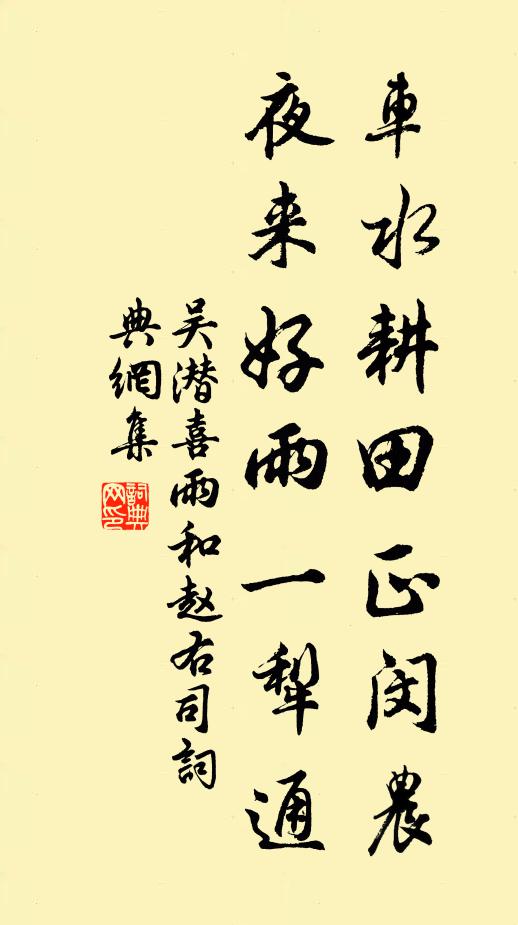 車水耕田正閔農
夜来好雨一犁通
吴潜喜雨和赵右司詞
典網集
詞典网印